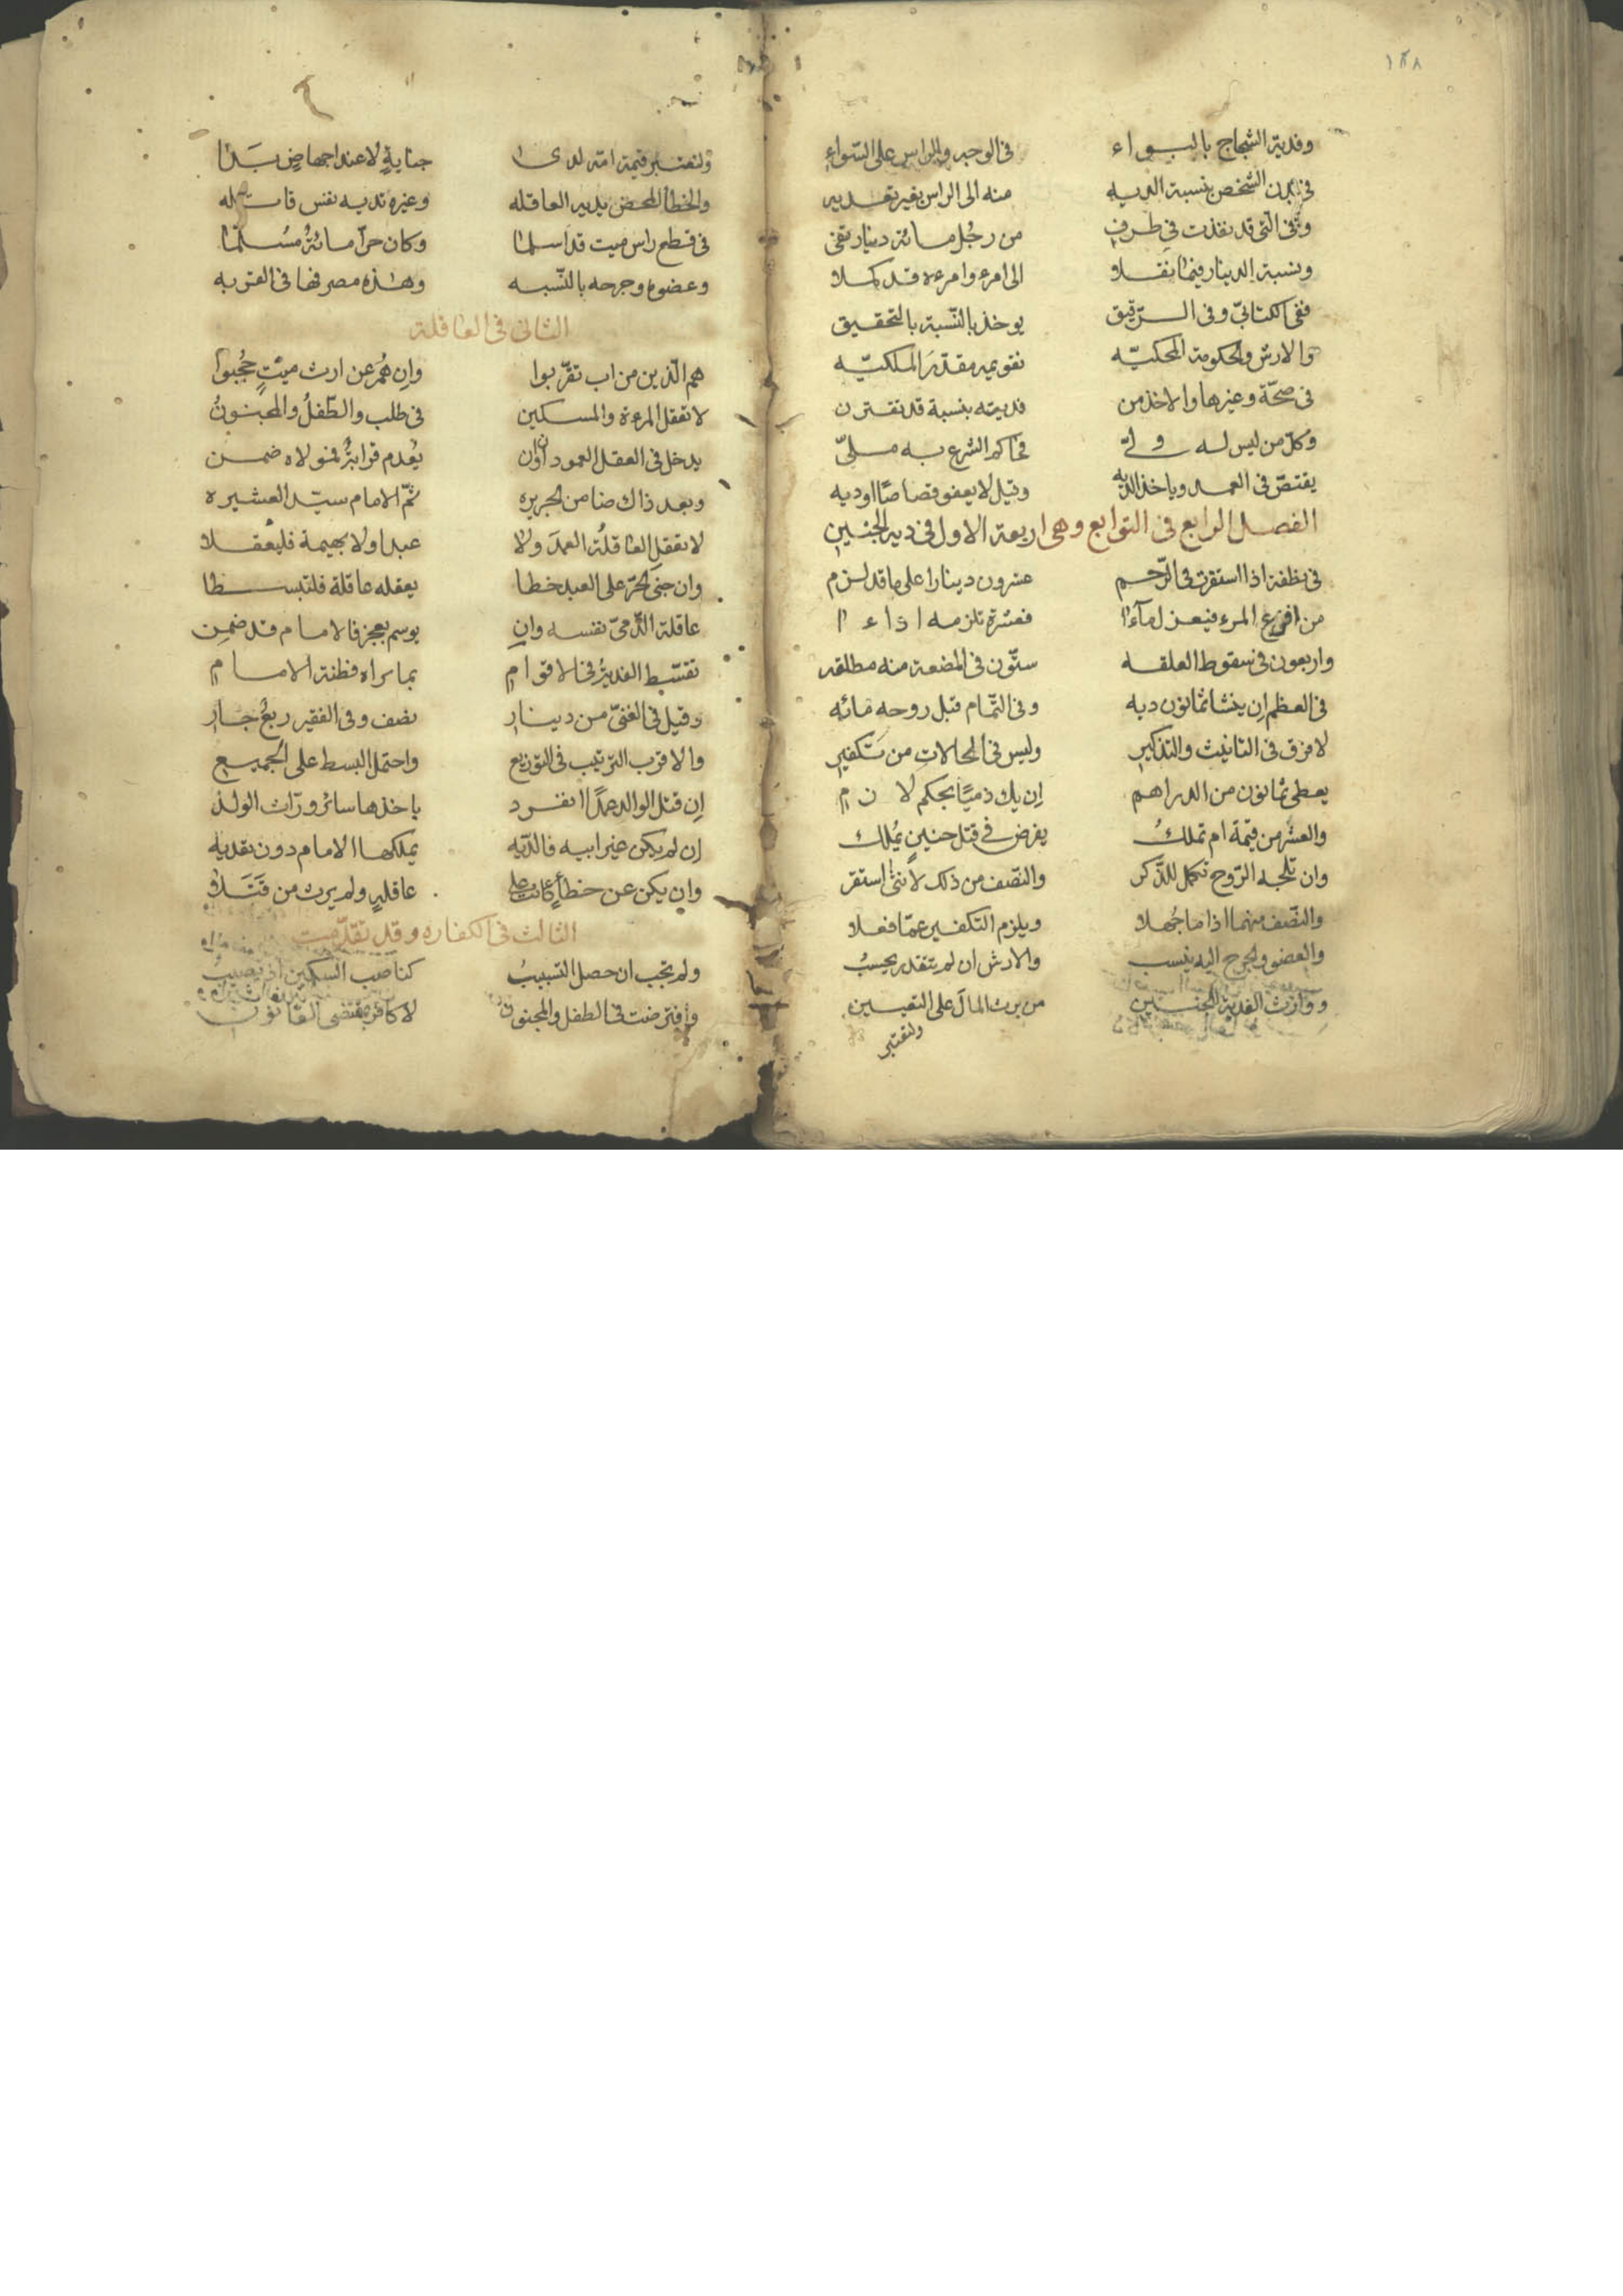 ١٣٨
وفدية الشجاج بالسواء في الوجه والراس على السواء
في بدن الشخص بنسبة الديه منه الى الراس بغير تعديه
وفي التي قد نفذت في طرف من رجل مائة دينار تفي
ونسبة الدينار فيما نقلا الى امرء وامرءة قد كملا
ففي الكتابيّ وفي الرّقيق يوخذ بالنّسبة بالتحقيق
والارش والحكومة المحكيّه تقويمه مقدّر الملكيّه
في صحّة وغيرها والاخذ من فديته بنسبة قد تقترن
وكلّ من ليس له ولي فحاكم الشرع به مليّ
يقتصّ في العمد وياخذ الديه وقيل لا يعفو قصاصًا اوديه
الفصل الرابع في التوابع وهي اربعة الاول في دية الجنين
في نطفة اذا استقرت في الرّحم عشرون دينارا على ما قد لزم
من افزع المرء فيعزل ماءا فعشرة تلزمه اداءا
واربعون في سقوط العلقه ستّون في المضغة منه مطلقه
في العظم ان ينشا ثمانون ديه وفي التّمام قبل روحه مائه
لا فرق في التانيث والتذكير وليس في الحالات من تكفير
يعطى ثمانون من الدراهم ان يك ذميّا بحكم لازم
والعشر من قيمة ام تملك يفرض في قتل جنين يملك
وان تلجه الرّوح تكمل للذّكر والنّصف من ذلك لانثى استقر
والنّصف منهما اذا ما جهلا ويلزم التكفير عمّا فعلا
والعضو والجرح اليه ينسب والارش ان لم يتقدر يحسب
ووارث الفدية للجنين من يرث المال على التعيين
ولتعتبر
ولتعتبر قيمة امّه لدى جناية لا عند اجهاض بدا
والخطأ المحض يديه العاقله وغيره تديه نفس فاعله
في قطع راس ميت قد اسلما وكان حرّا مائة مسلّما
وعضوه وجرحه بالنّسبه وهذه مصرفها في القربه
الثاني في العاقلة
هم الّذين من اب تقرّبوا وان هم عن ارث ميت حجبوا
لا تعقل المرءة والمسكين في طلب والطّفل والمجنون
يدخل في العقل العمودان وان يعدم قرابة فمولاه ضمن
وبعد ذاك ضامن الجريره ثمّ الامام سيّد العشيره
لا تعقل العاقلة العمد ولا عبدا ولا بهيمة فليعقلا
وان جنى الحرّ على العبد خطا يعقله عاقلة فلتبسطا
عاقلة الذّميّ نفسه وان يوسم بعجز فالامام قد ضمن
تقسّط الفدية في الاقوام بما يراه فطنة الامام
وقيل في الغنيّ من دينار نصف وفي الفقير ربع جار
والاقرب الترتيب في التوزيع واحتمل البسط على الجميع
ان قتل الوالد عمدًا انفرد ياخذها سائر ورّاث الولد
ان لم يكن غير ابيه فالدّيه يملكها الامام دون تعديه
وان يكن عن خطأ كانت على عاقله ولم يرث من قتلا
الثالث في الكفاره وقد تقدّمت
ولم تجب ان حصل التسبيب كناصب السكّين اذ تصيب
وافترضت في الطفل والمجنون لا كافر بمقتضى القانون